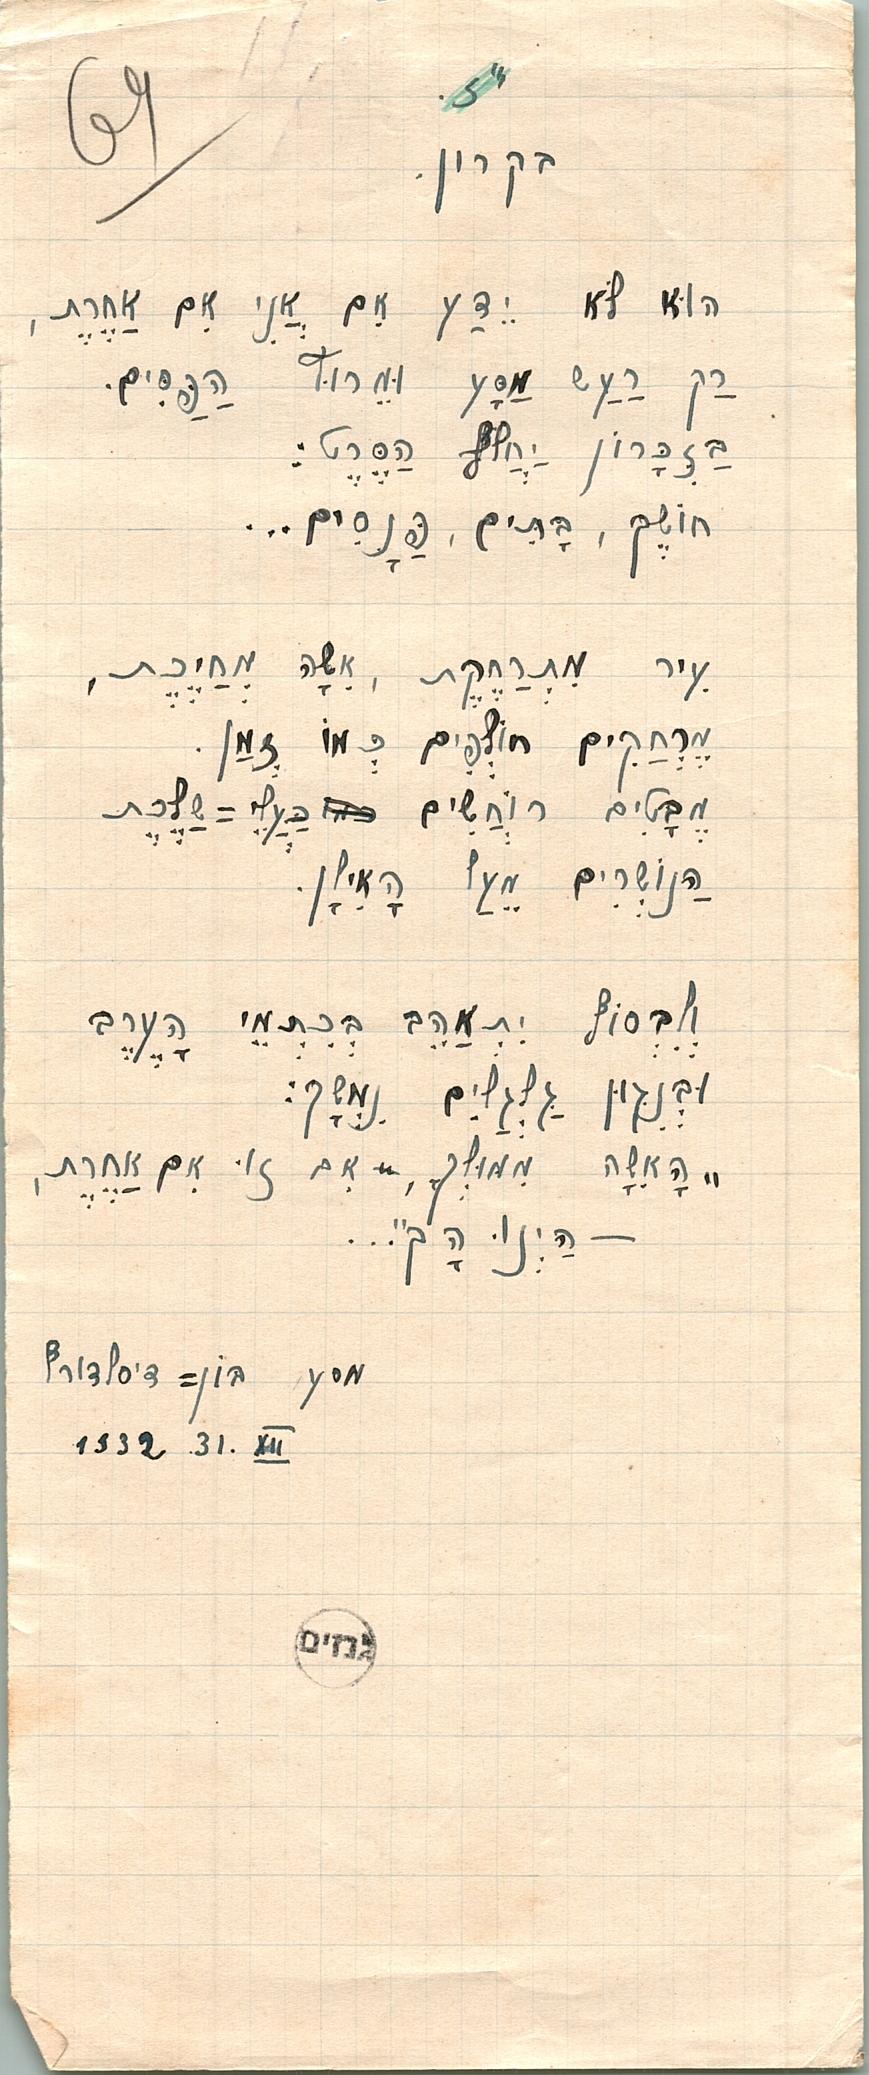 69
י"ז.
בקרון.
הוּא לֹא יֵדַע אִם אֲנִי אִם אַחֶרֶת,
רַק רַעַשׁ מַסָּע וּמֵרוּץ הַפַּסִּים.
בַּזִּכָּרוֹן יַחֲלֹף הַסֶּרֶט:
חוֹשֶׁךְ, בָּתִּים, פַּנָּסִים...
עִיר מִתְרַחֶקֶת, אִשָּׁה מְחַיֶּכֶת,
מֶרְחַקִּים חוֹלְפִים כְּמוֹ זְמַן.
מַבָּטִים רוֹחֲשִׁים כַּעֲלֵי=שַׁלֶּכֶת
הַנּוֹשְׁרִים מֵעַל הָאִילָן.
וְלִבְסוֹף יִתְאַהֵב בְּכִתְמֵי הָעֶרֶב
וּבְנִגּוּן גַּלְגַּלִּים נִמְשָׁךְ:
"הָאִשָּׁה מִמּוּלְךָ, אִם זוֹ אִם אַחֶרֶת,
— הַיְנוּ הָךְ"...
מסע בּוֹן=דיסלדורף
1932 31. XII
גנזים